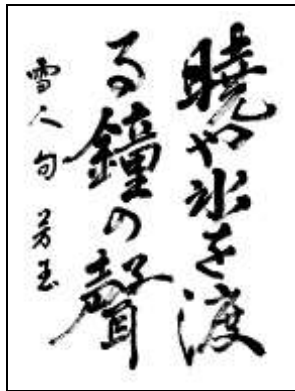 暁や氷を渡
る鐘の聲
雪人句 芳玉